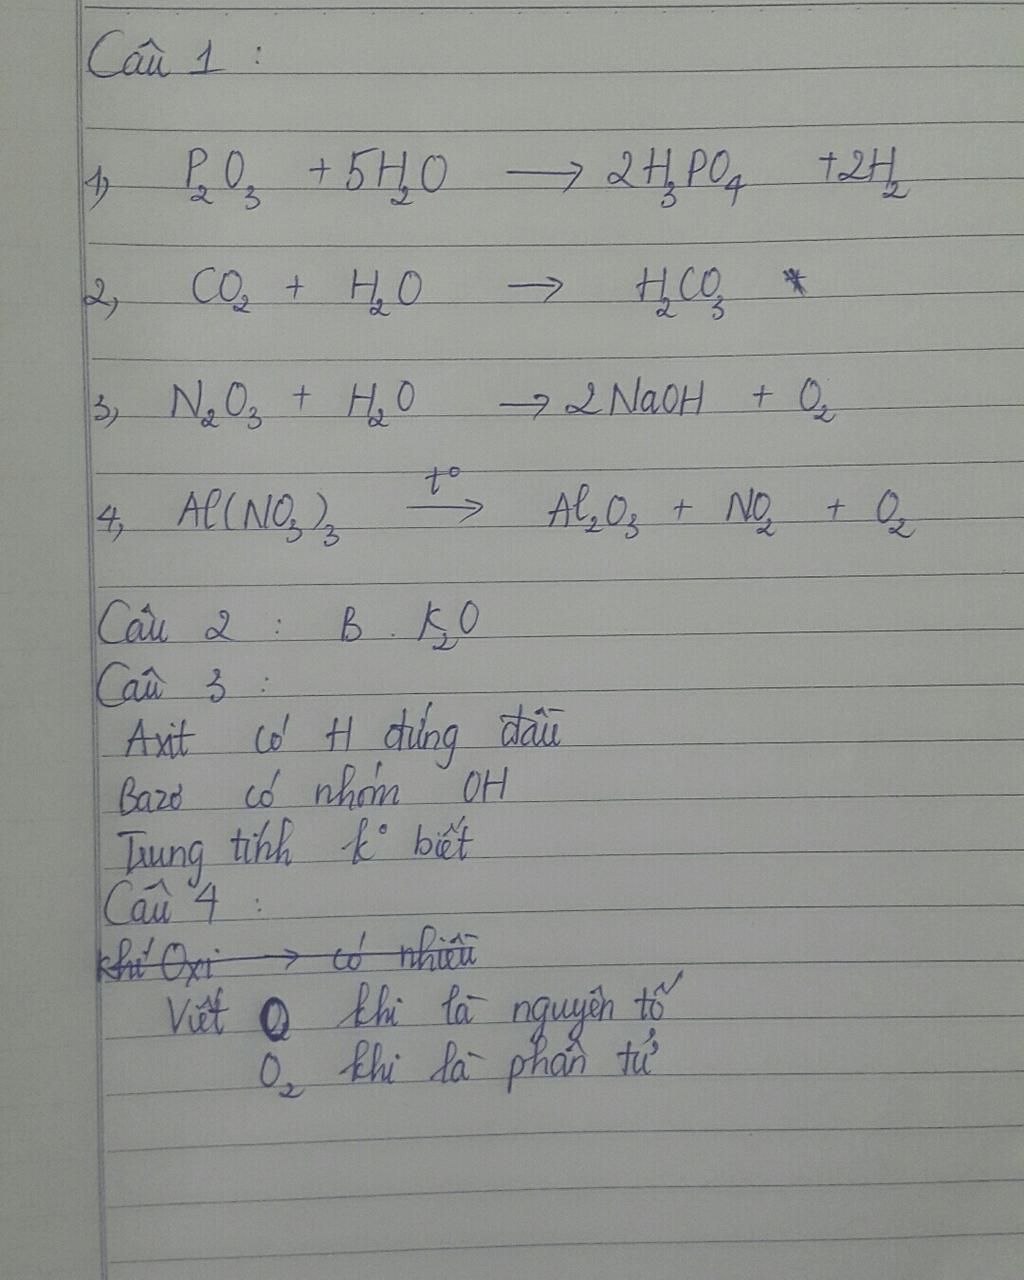 Câu 1 :
1, P₂O₃ + 5H₂O → 2H₃PO₄ + 2H₂
2, CO₂ + H₂O → H₂CO₃
3, N₂O₃ + H₂O → 2NaOH + O₂
4, Al(NO₃)₃ t° → Al₂O₃ + NO₂ + O₂
Câu 2 : B. K₂O
Câu 3 :
Axit có H đứng đầu
Bazơ có nhóm OH
Trung tính k° biết
Câu 4 :
khí Oxi → có nhiều
Viết O khi là nguyên tố
O₂ khi là phân tử